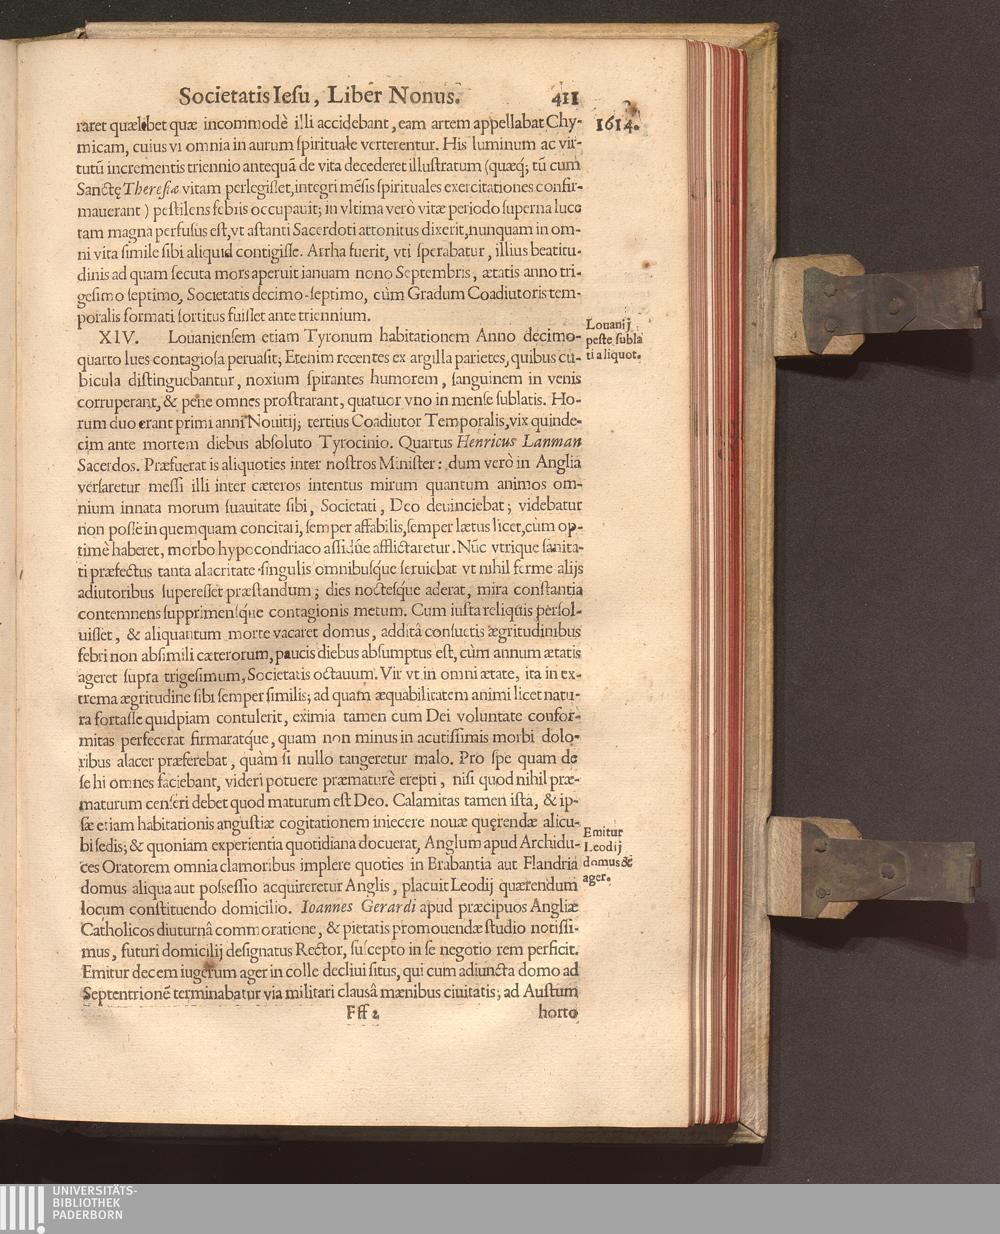 Societatis Iesu, Liber Nonus. 411
1614.
raret quælibet quæ incommodè illi accidebant, eam artem appellabat Chy-
micam, cuius vi omnia in aurum spirituale verterentur. His luminum ac vir-
tutũ incrementis triennio antequã de vita decederet illustratum (quæq; tũ cum
Sanctę Theresiæ vitam perlegisset, integri mẽsis spirituales exercitationes confir-
mauerant) pestilens febris occupauit; in vltima verò vitæ periodo superna luce
tam magna perfusus est, vt astanti Sacerdoti attonitus dixerit, nunquam in om-
ni vita simile sibi aliquid contigisse. Arrha fuerit, vti sperabatur, illius beatitu-
dinis ad quam secuta mors aperuit ianuam nono Septembris, ætatis anno tri-
gesimo septimo, Societatis decimo-septimo, cùm Gradum Coadiutoris tem-
poralis formati sortitus fuisset ante triennium.
XIV. Louaniensem etiam Tyronum habitationem Anno decimo-
quarto lues contagiosa peruasit; Etenim recentes ex argilla parietes, quibus cu-
bicula distinguebantur, noxium spirantes humorem, sanguinem in venis
corruperant, & pene omnes prostrarant, quatuor vno in mense sublatis. Ho-
rum duo erant primi anni Nouitij; tertius Coadiutor Temporalis, vix quinde-
cim ante mortem diebus absoluto Tyrocinio. Quartus Henricus Lanman
Sacerdos. Præfuerat is aliquoties inter nostros Minister: dum verò in Anglia
versaretur messi illi inter cæteros intentus mirum quantum animos om-
nium innata morum suauitate sibi, Societati, Deo deuinciebat; videbatur
non posse in quemquam concitari, semper affabilis, semper lætus licet, cùm op-
timè haberet, morbo hypocondriaco assiduè afflictaretur. Nũc vtrique sanita-
ti præfectus tanta alacritate singulis omnibusq́ue seruiebat vt nihil ferme alijs
adiutoribus superesset præstandum; dies noctesq́ue aderat, mira constantia
contemnens supprimensq́ue contagionis metum. Cum iusta reliquis persol-
uisset, & aliquantum morte vacaret domus, additâ consuetis ægritudinibus
febri non absimili cæterorum, paucis diebus absumptus est, cùm annum ætatis
ageret supra trigesimum, Societatis octauum. Vir vt in omni ætate, ita in ex-
trema ægritudine sibi semper similis; ad quam æquabilitatem animi licet natu-
ra fortasse quidpiam contulerit, eximia tamen cum Dei voluntate confor-
mitas perfecerat firmaratq́ue, quam non minus in acutissimis morbi dolo-
ribus alacer præferebat, quàm si nullo tangeretur malo. Pro spe quam de
se hi omnes faciebant, videri potuere præmaturè erepti, nisi quod nihil præ-
maturum censeri debet quod maturum est Deo. Calamitas tamen ista, & ip-
sæ etiam habitationis angustiæ cogitationem iniecere nouæ quęrendæ alicu-
bi sedis; & quoniam experientia quotidiana docuerat, Anglum apud Archidu-
ces Oratorem omnia clamoribus implere quoties in Brabantia aut Flandria
domus aliqua aut possessio acquireretur Anglis, placuit Leodij quærendum
locum constituendo domicilio. Ioannes Gerardi apud præcipuos Angliæ
Catholicos diuturnâ commoratione, & pietatis promouendæ studio notissi-
mus, futuri domicilij designatus Rector, suscepto in se negotio rem perficit.
Emitur decem iugerum ager in colle decliui situs, qui cum adiuncta domo ad
Septentrionẽ terminabatur via militari clausâ mænibus ciuitatis; ad Austum
Fff 2 horto
Louanij
peste subla
ti aliquot.
Emitur
Leodij
domus &
ager.
UNIVERSITÄTS-
BIBLIOTHEK
PADERBORN